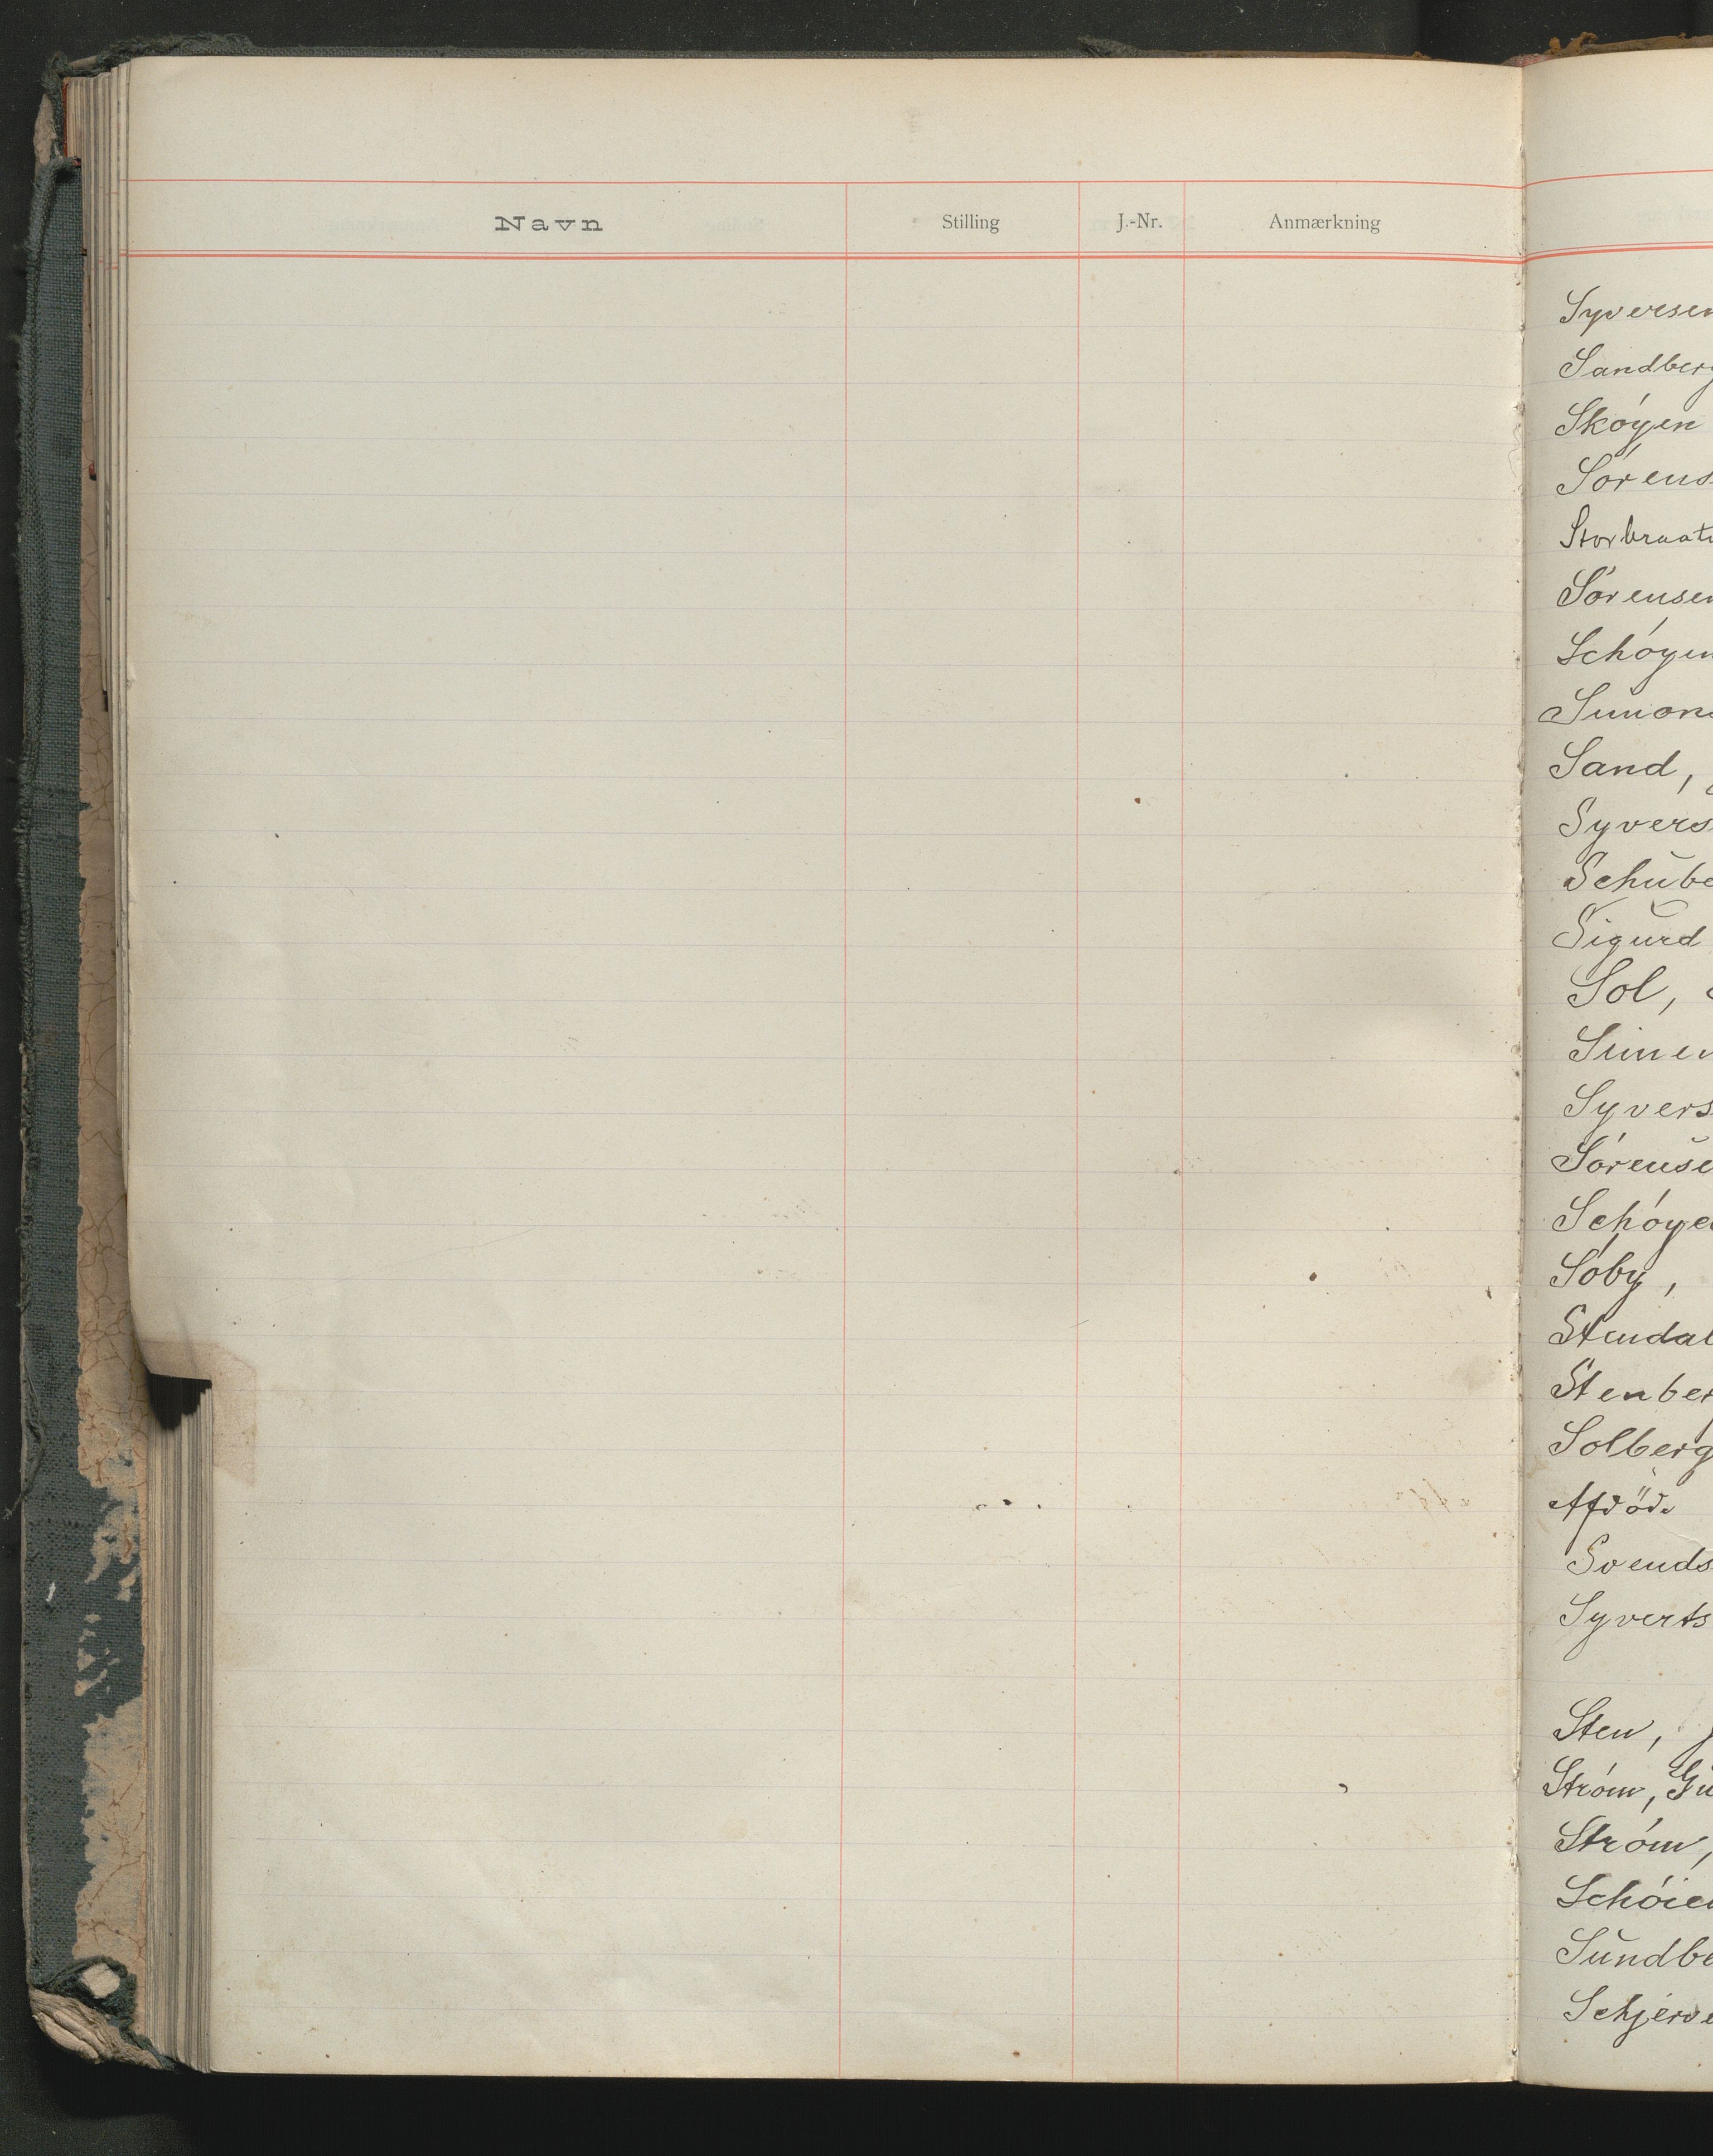 Navn Stilling J.-Nr. Anmærkning
Syversen
Sandberg
Skóyen
Sórens
Storbraat
Sórensen
Schóyen
Simon
Sand,
Syvers
Schŭbe
Sigŭrd
Sol,
Simen
Syvers
Sórense
Schóye
Sóby,
Stendal
Stenber
Solberg
Afdöde
Svends
Syverts
Sten,
Stróm, Gu
Stróm,
Schóien
Sŭndbe
Schjerve